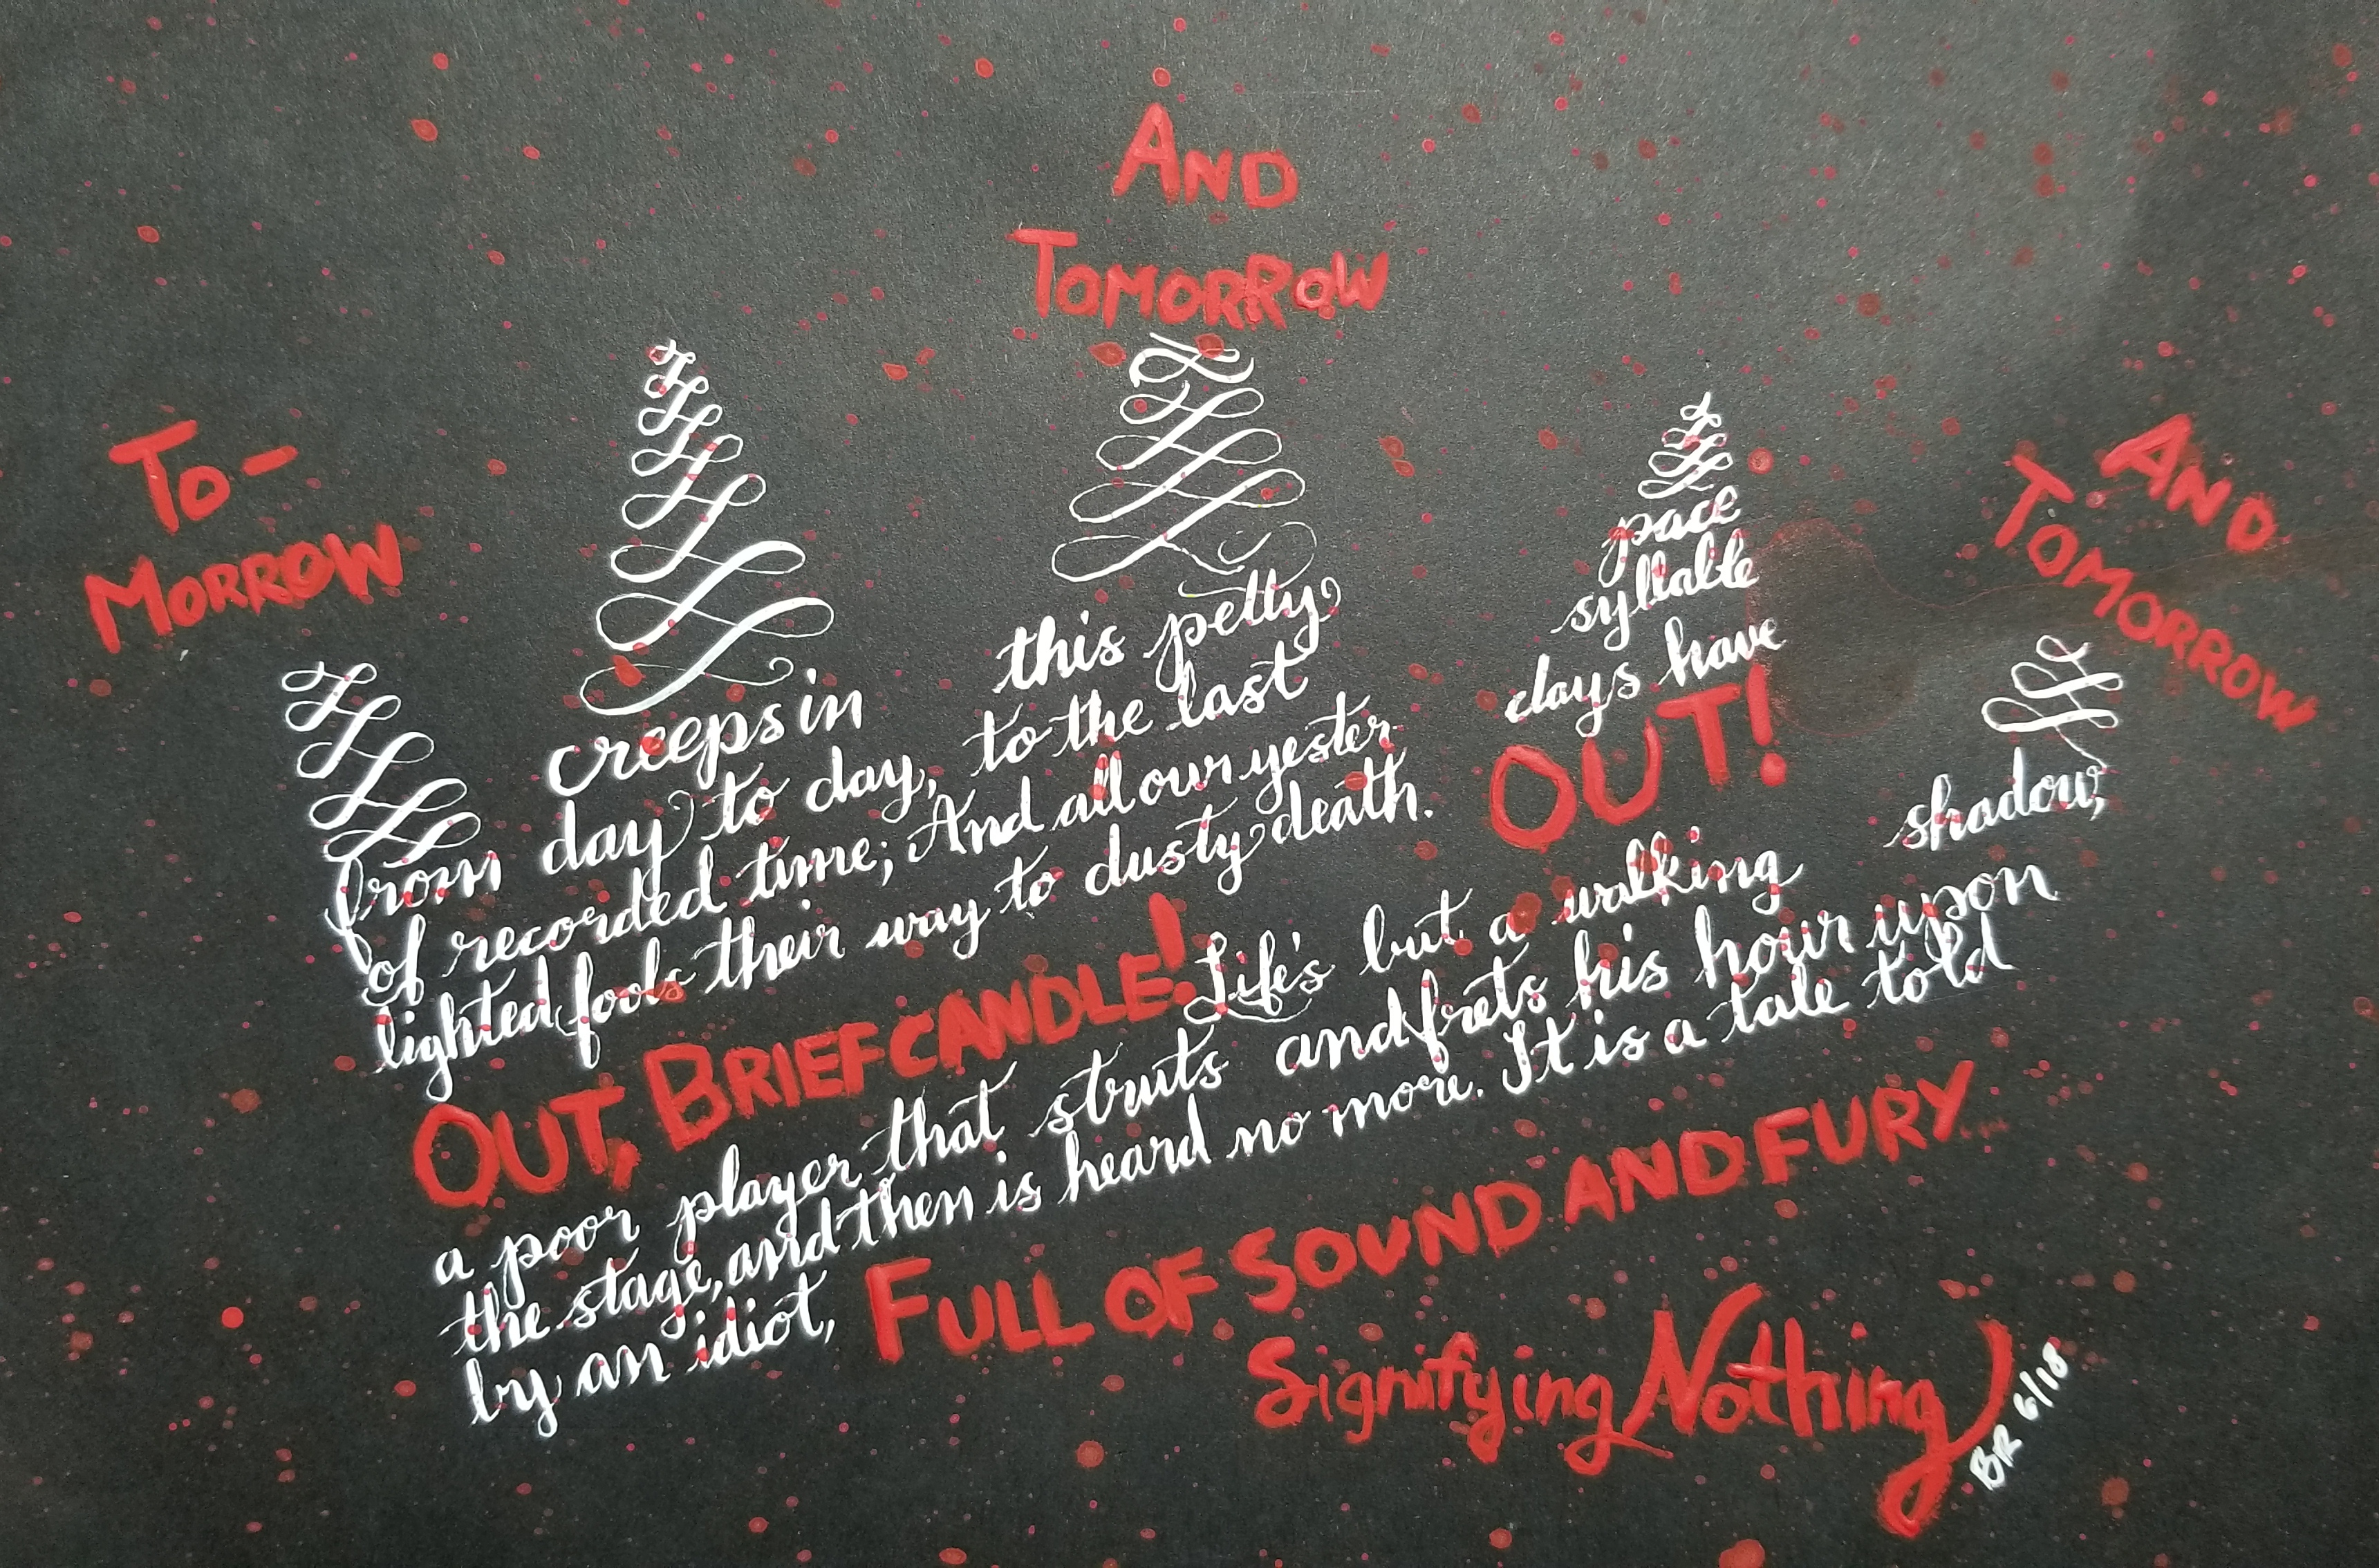 To-
MORROW
AND
TOMORROW
AND
TOMORROW
creeps in this petty pace
from day to day, to the last syllable
of recorded time; And all our yester days have
lighted fools their way to dusty death. OUT!
OUT, BRIEF CANDLE! Life's but a walking shadow,
a poor player that struts and frets his hour upon
the stage, and then is heard no more. It is a tale told
by an idiot, FULL OF SOUND AND FURY
Signifying Nothing
BR 6/18